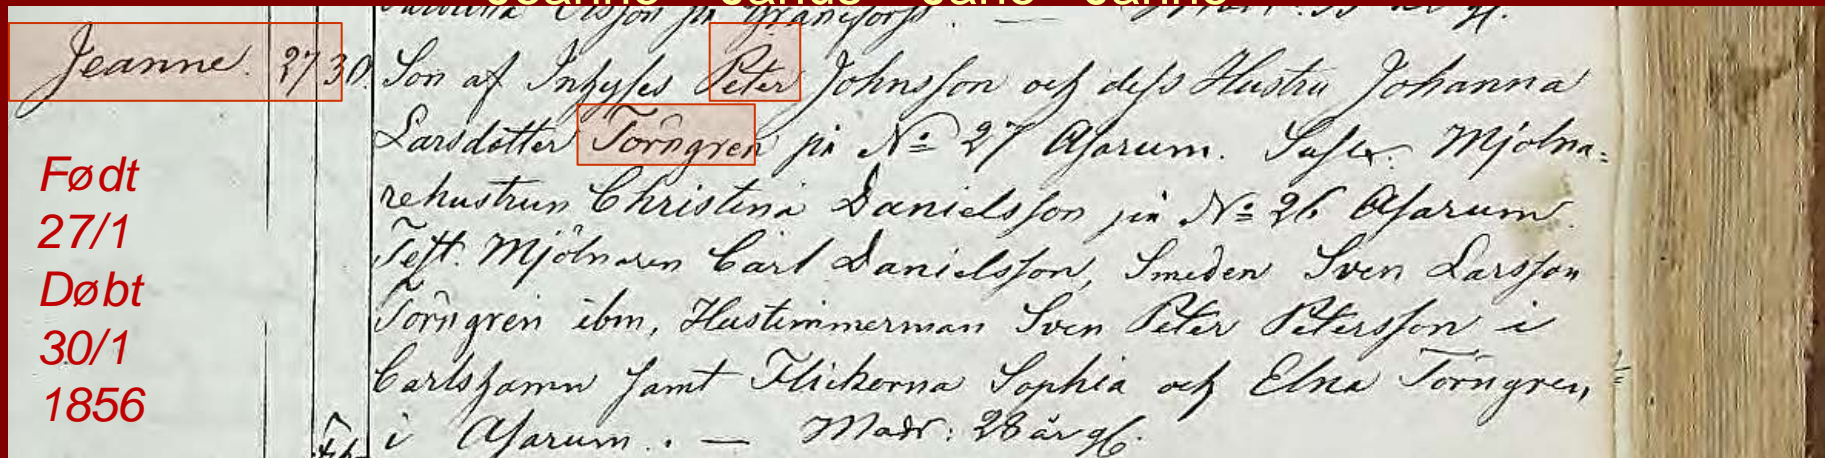 Jeanne - Janus - Jane - Janne
Olsson på Granefors. —
Jeanne. 27 30. Son af Inhyses Peter Johnsson och dess Hustru Johanna
Larsdotter Törngren på No 27 Asarum. Mjölna-
rehustrun Christina Danielsson på No 26 Asarum.
Test. Mjölnaren Carl Danielsson, Smeden Sven Larsson
Törngren ibm, Hustimmerman Sven Peter Petersson i
Carlshamn samt Flickorna Sophia och Elna Törngren,
i Asarum. — Modr: 28 år gl.
Født
27/1
Døbt
30/1
1856